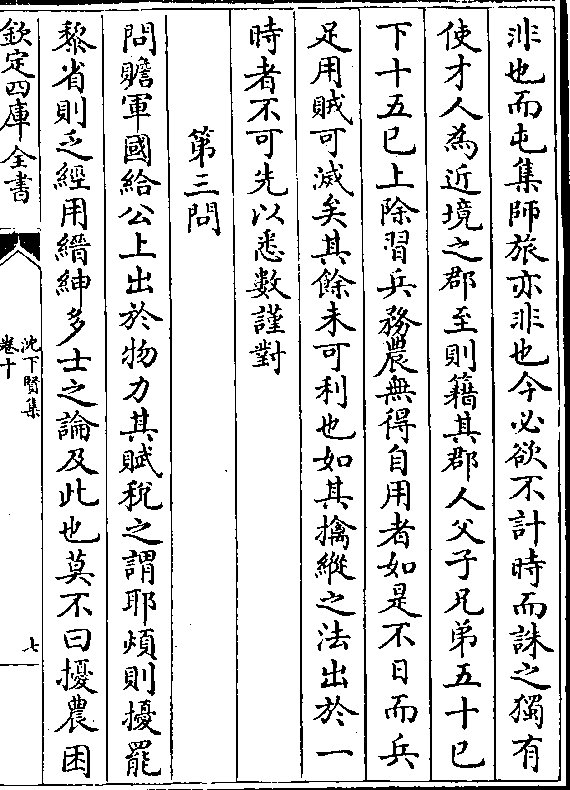 非也而屯集師旅亦非也今必欲不計時而誅之獨有
使才人為近境之郡至則籍其郡人父子兄弟五十已
下十五已上除習兵務農無得自用者如是不日而兵
足用賊可滅矣其餘未可利也如其擒縱之法出於一
時者不可先以悉數謹對
第三問
問贍軍國給公上出於物力其賦稅之謂耶煩則擾罷
黎省則乏經用縉紳多士之論及此也莫不曰擾農困
欽定四庫全書
沈下賢集
卷十
七